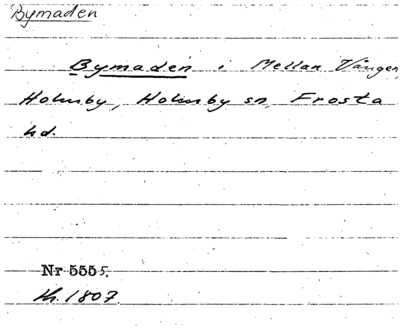 Bymaden
Bymaden i Mellan Vången,
Holmby, Holmby sn, Frosta
hd.
Nr 5555.
1807.